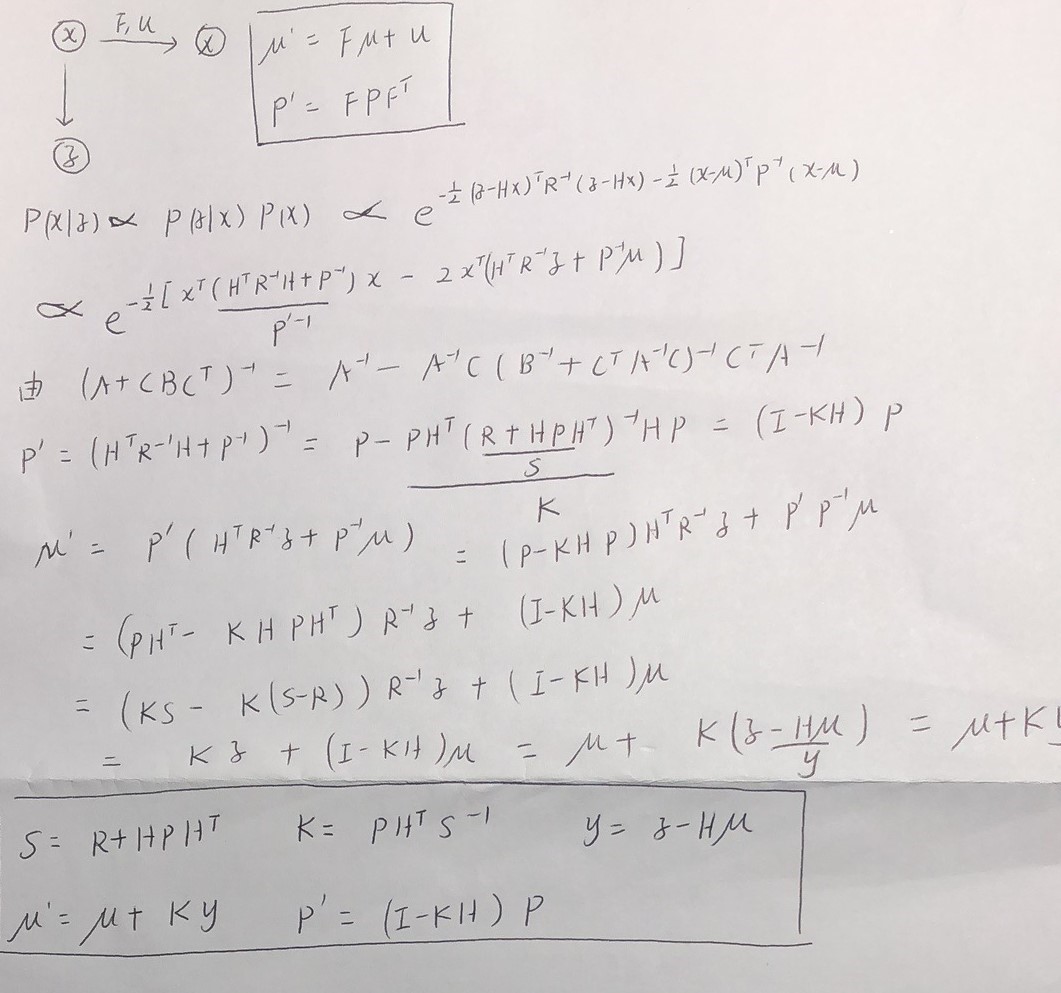 x F, u x μ' = Fμ + u
P' = FPFᵀ
z
P(x|z) ∝ P(z|x) P(x) ∝ e^{-½ (z-Hx)ᵀR⁻¹(z-Hx) - ½ (x-μ)ᵀP⁻¹(x-μ)}
∝ e^{-½ [xᵀ(HᵀR⁻¹H + P⁻¹)x - 2xᵀ(HᵀR⁻¹z + P⁻¹μ)]}
P'⁻¹
由 (A + CBCᵀ)⁻¹ = A⁻¹ - A⁻¹C(B⁻¹ + CᵀA⁻¹C)⁻¹CᵀA⁻¹
P' = (HᵀR⁻¹H + P⁻¹)⁻¹ = P - PHᵀ(R + HPHᵀ)⁻¹HP = (I-KH)P
S
K
μ' = P'(HᵀR⁻¹z + P⁻¹μ) = (P-KHP)HᵀR⁻¹z + P'P⁻¹μ
= (PHᵀ - KHPHᵀ)R⁻¹z + (I-KH)μ
= (KS - K(S-R))R⁻¹z + (I-KH)μ
= Kz + (I-KH)μ = μ + K(z-Hμ) = μ+K
y
S = R + HPHᵀ K = PHᵀS⁻¹ y = z-Hμ
μ' = μ + Ky P' = (I-KH)P